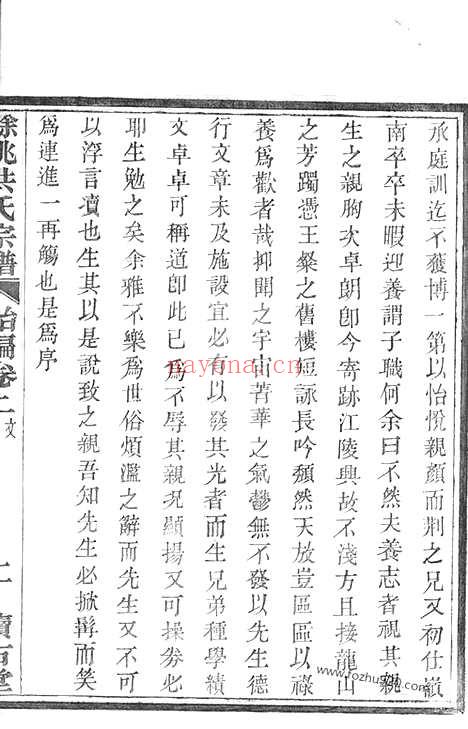 承庭訓迄不獲博一第以怡悅親顏而荆之兄又初仕嶺
南卒卒未暇迎養謂子職何余曰不然夫養志者視其親
生之親胸次卓朗卽今寄跡江陵興故不淺方且接龍山
之芳躅憑王粲之舊樓短詠長吟頹然天放豈區區以祿
養爲歡者哉抑聞之宇宙菁華之氣鬱無不發以先生德
行文章未及施設宜必有以發其光者而生兄弟種學績
文卓卓可稱道卽此已爲不辱其親況顯揚又可操券必
耶生勉之矣余雅不樂爲世俗煩濫之辭而先生亦不得
以浮言瀆也生其以是說致之親吾知先生必掀髯而笑
爲連進一再觴也是爲序
餘姚洪氏宗譜
貽編卷二
文
寶石堂
nayona.cn
www.fozhu920.com